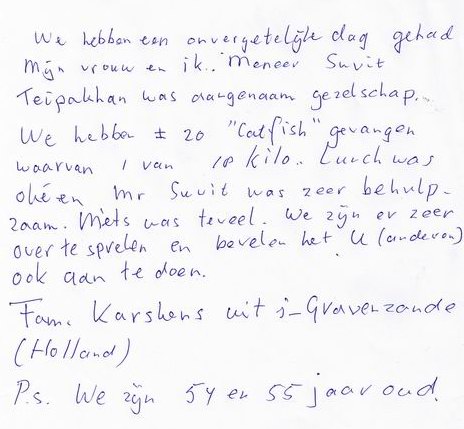 We hebben een onvergetelijke dag gehad
Mijn vrouw en ik.. Meneer Suvit
Teipakhan was aangenaam gezelschap..
We hebben ± 20 "Catfish" gevangen
waarvan 1 van 10 kilo.. Lunch was
oké en Mr Suvit was zeer behulp-
zaam. Niets was teveel. We zijn er zeer
over te spreken en bevelen het U (anderen)
ook aan te doen.
Fam. Karskens uit s-Gravenzande
(Holland)
P.s. We zijn 54 en 55 jaar oud.